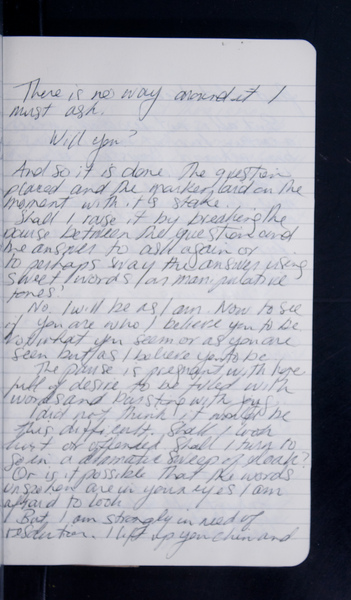 There is no way around it I
must ask.
Will you?
And so it is done. The question
placed and the marker laid on the
moment with its stake.
Shall I raise it by breaking the
pause between the question and
the answer to ask again or
to perhaps sway the answer using
sweet words or manipulative
tones?
No. I will be as I am. Now to see
if you are who I believe you to be
not what you seem or as you are
seen but as I believe you to be.
The pause is pregnant with hope
full of desire to be filled with
words and bursting with
I did not think it would be
this difficult. Shall I look
hurt or offended. Shall I turn to
go in a dramatic sweep of cloak?
Or is it possible that the words
unspoken are in your eyes I am
afraid to look
But, I am strongly in need of
resolution. I lift up your chin and